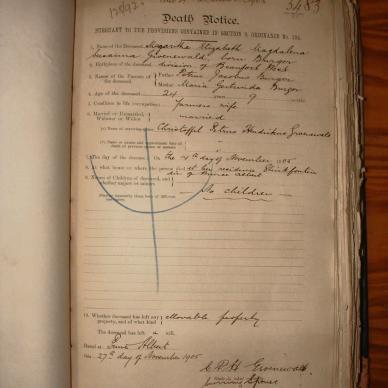 12892.
3483
Death Notice.
PURSUANT TO THE PROVISIONS CONTAINED IN SECTION 9, ORDINANCE No. 104.
1. Name of the Deceased Elizabeth Magdalena
Susanna Groenewald, born Burger
2. Birthplace of the deceased division of Beaufort West
3. Names of the Parents of the deceased Father Petrus Jacobus Burger
Mother Maria Gertruida Burger
4. Age of the deceased 24 9
5. Condition in life (occupation) farmers wife
6. Married or Unmarried, Widower or Widow married
Christoffel Petrus Hendrikus Groenewald
7. The day of the decease On the 4th day of November 1905
8. At what house or where the person died at her residence
div of Prince Albert
9. Names of Children of deceased, and whether majors or minors
No children
10. Whether deceased has left any property, and of what kind Movable property
The deceased has left a will.
Dated at Prince Albert
this 27th day of November 1905
C P H Groenewald
surviving spouse